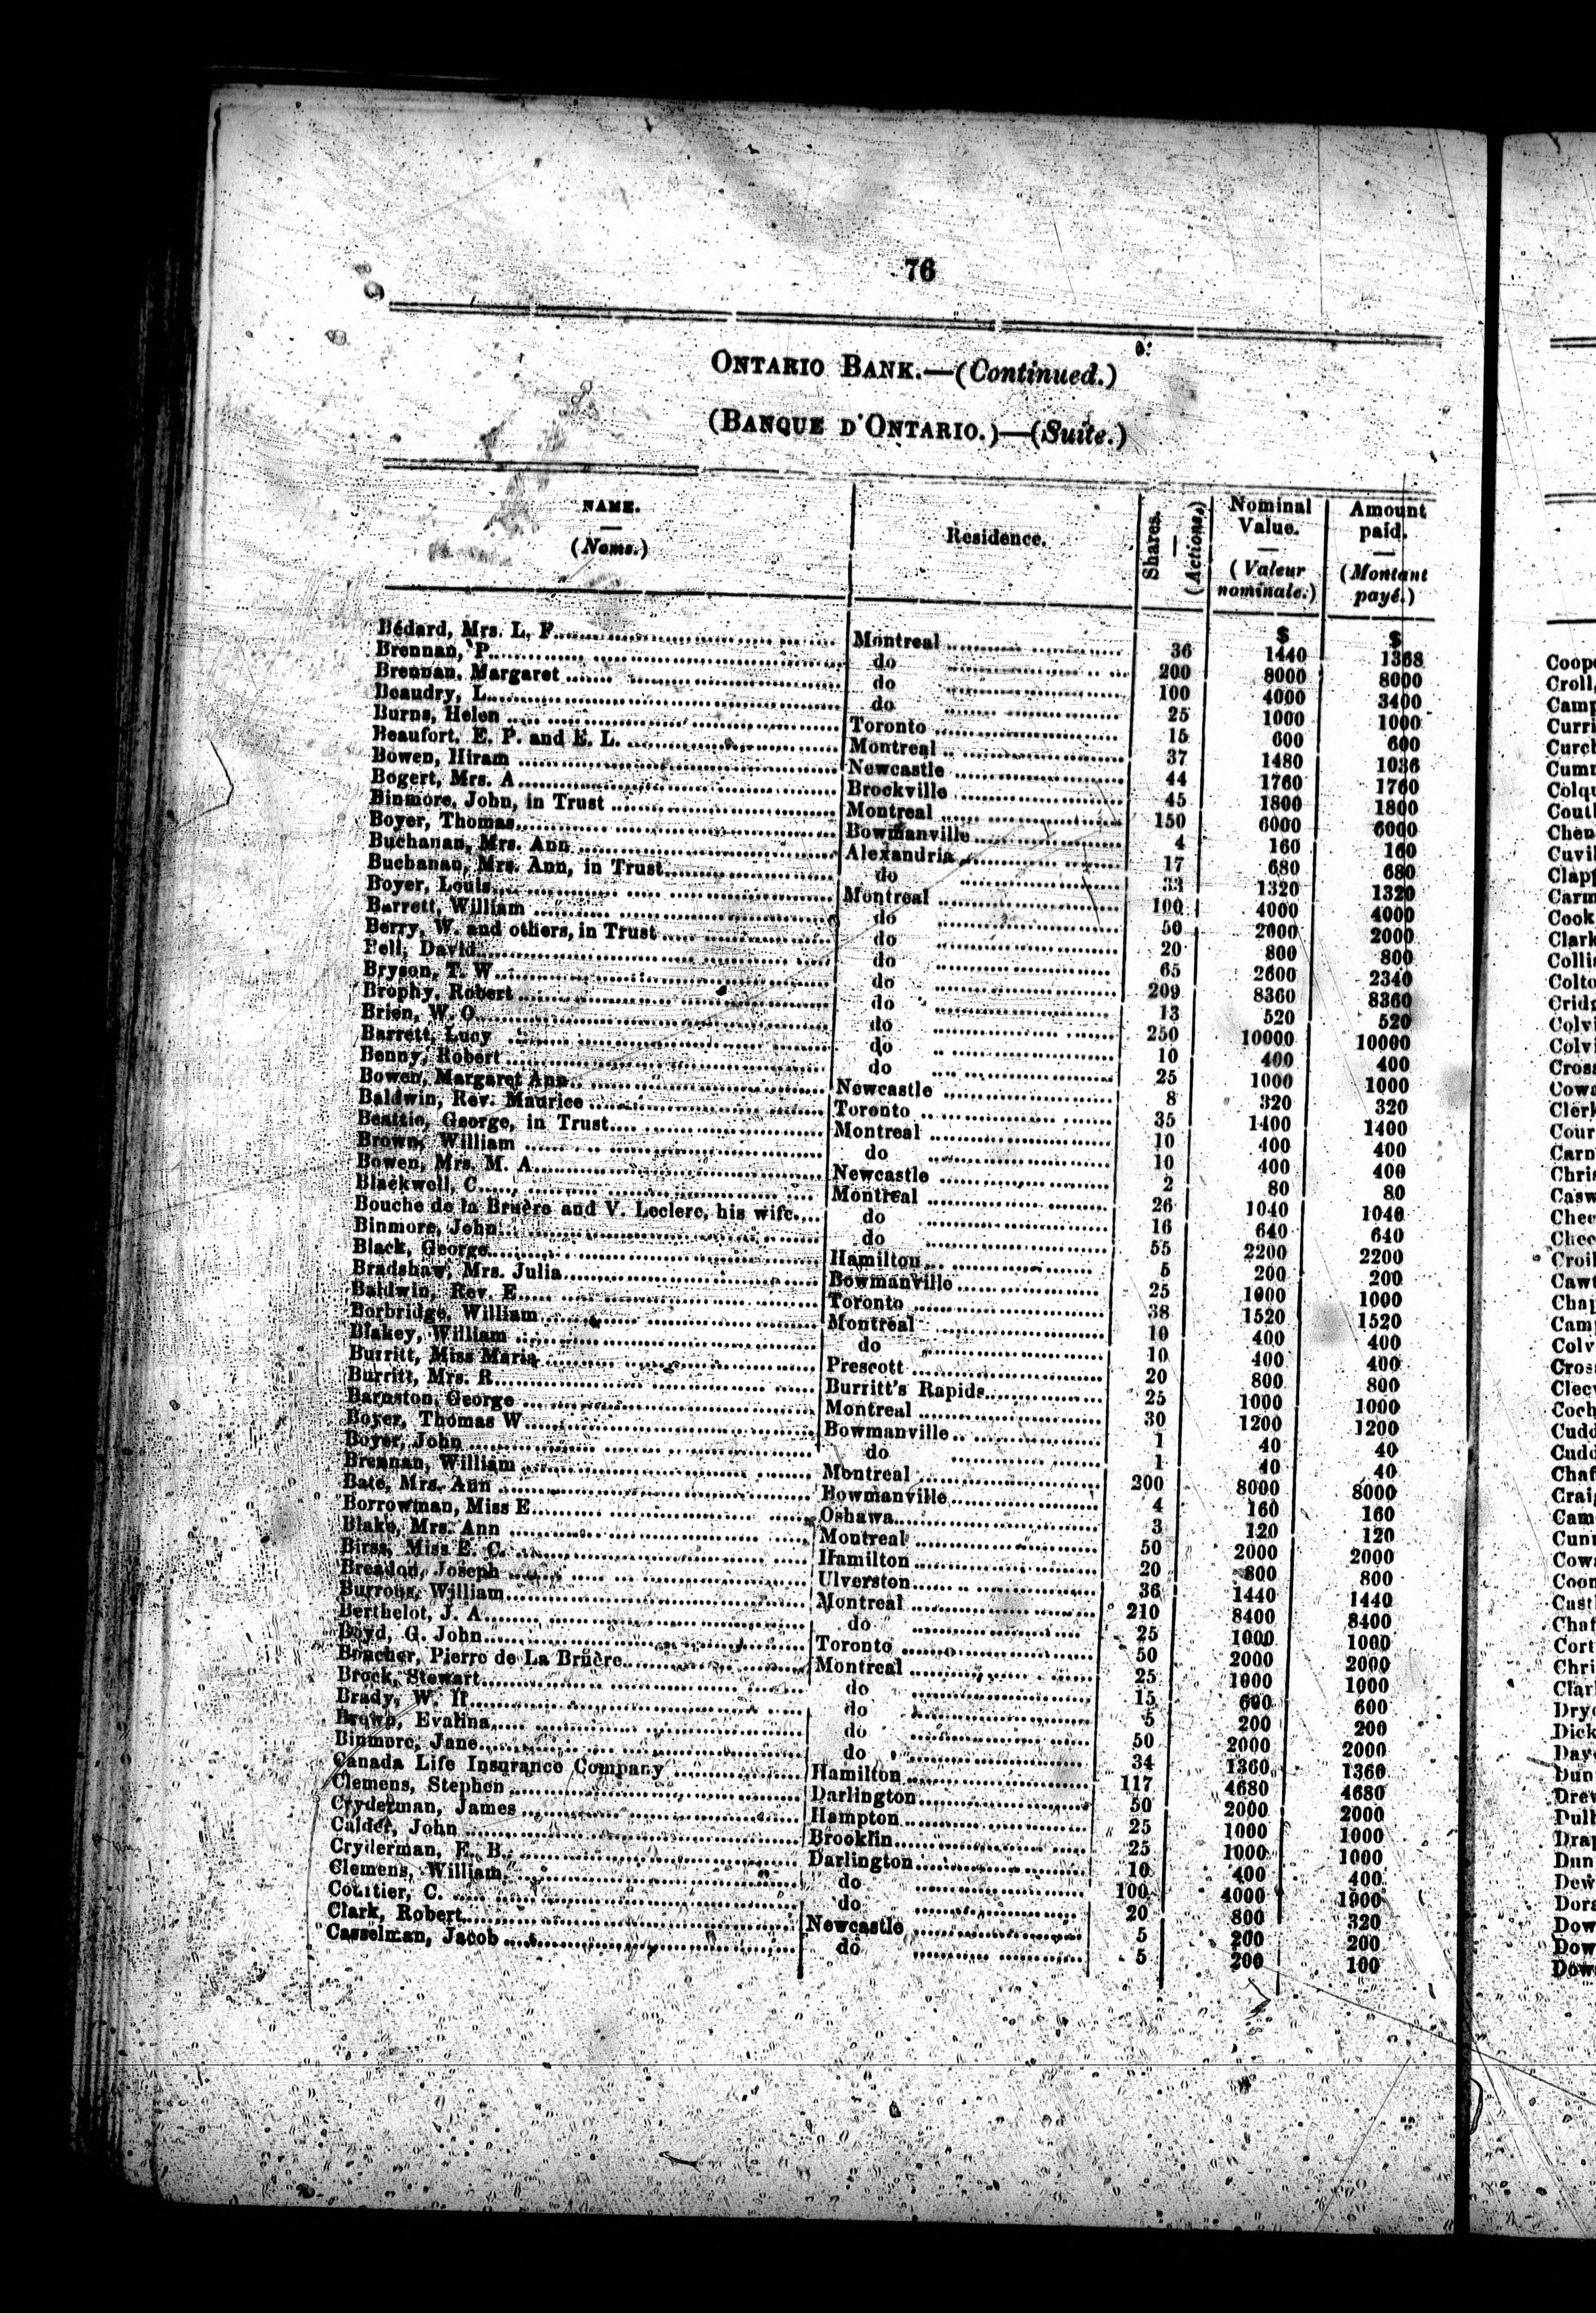 76
ONTARIO BANK.—(Continued.)
(BANQUE D'ONTARIO.)—(Suite.)
NAME. — (Noms.) Residence. Shares. — (Actions.) Nominal Value. — (Valeur nominale.) Amount paid. — (Montant payé.)
$ $
Bédard, Mrs. L. F. Montreal 36 1440 1368
Brennan, P. do 200 8000 8000
Brennan, Margaret do 100 4000 3400
Beaudry, L. do 25 1000 1000
Burns, Helen Toronto 15 600 600
Beaufort, E. P. and E. L. Montreal 37 1480 1036
Bowen, Hiram Newcastle 44 1760 1760
Bogert, Mrs. A. Brockville 45 1800 1800
Binmore, John, in Trust Montreal 150 6000 6000
Boyer, Thomas Bowmanville 4 160 160
Buchanan, Mrs. Ann Alexandria 17 680 680
Buchanan, Mrs. Ann, in Trust do 33 1320 1320
Boyer, Louis Montreal 100 4000 4000
Barrett, William do 50 2000 2000
Berry, W. and others, in Trust do 20 800 800
Bell, David do 65 2600 2340
Bryson, T. W. do 209 8360 8360
Brophy, Robert do 13 520 520
Brien, W. O. do 250 10000 10000
Barrett, Lucy do 10 400 400
Benny, Robert do 25 1000 1000
Bowen, Margaret Ann Newcastle 8 320 320
Baldwin, Rev. Maurice Toronto 35 1400 1400
Beattie, George, in Trust Montreal 10 400 400
Brown, William do 10 400 400
Bowen, Mrs. M. A. Newcastle 2 80 80
Blackwell, C. Montreal 26 1040 1040
Bouche de la Bruère and V. Leclerc, his wife. do 16 640 640
Binmore, John do 55 2200 2200
Black, George Hamilton 5 200 200
Bradshaw, Mrs. Julia Bowmanville 25 1000 1000
Baldwin, Rev. E. Toronto 38 1520 1520
Borbridge, William Montreal 10 400 400
Blakey, William do 10 400 400
Burritt, Miss Maria Prescott 20 800 800
Burritt, Mrs. R. Burritt's Rapids 25 1000 1000
Barnston, George Montreal 30 1200 1200
Boyer, Thomas W. Bowmanville 1 40 40
Boyer, John do 1 40 40
Brennan, William Montreal 200 8000 8000
Bate, Mrs. Ann Bowmanville 4 160 160
Borrowman, Miss E. Oshawa 3 120 120
Blake, Mrs. Ann Montreal 50 2000 2000
Birss, Miss E. C. Hamilton 20 800 800
Breadon, Joseph Ulverston 36 1440 1440
Burrous, William Montreal 210 8400 8400
Berthelot, J. A. do 25 1000 1000
Boyd, G. John Toronto 50 2000 2000
Boucher, Pierre de La Brüère Montreal 25 1000 1000
Brock, Stewart do 15 600 600
Brady, W. H. do 5 200 200
Brown, Evalina do 50 2000 2000
Binmore, Jane do 34 1360 1360
Canada Life Insurance Company Hamilton 117 4680 4680
Clemens, Stephen Darlington 50 2000 2000
Cryderman, James Hampton 25 1000 1000
Calder, John Brooklin 25 1000 1000
Cryderman, E. B. Darlington 10 400 400
Clemens, William do 100 4000 1900
C. do 20 800 320
Clark, Robert Newcastle 5 200 200
Casselman, Jacob do 5 200 100